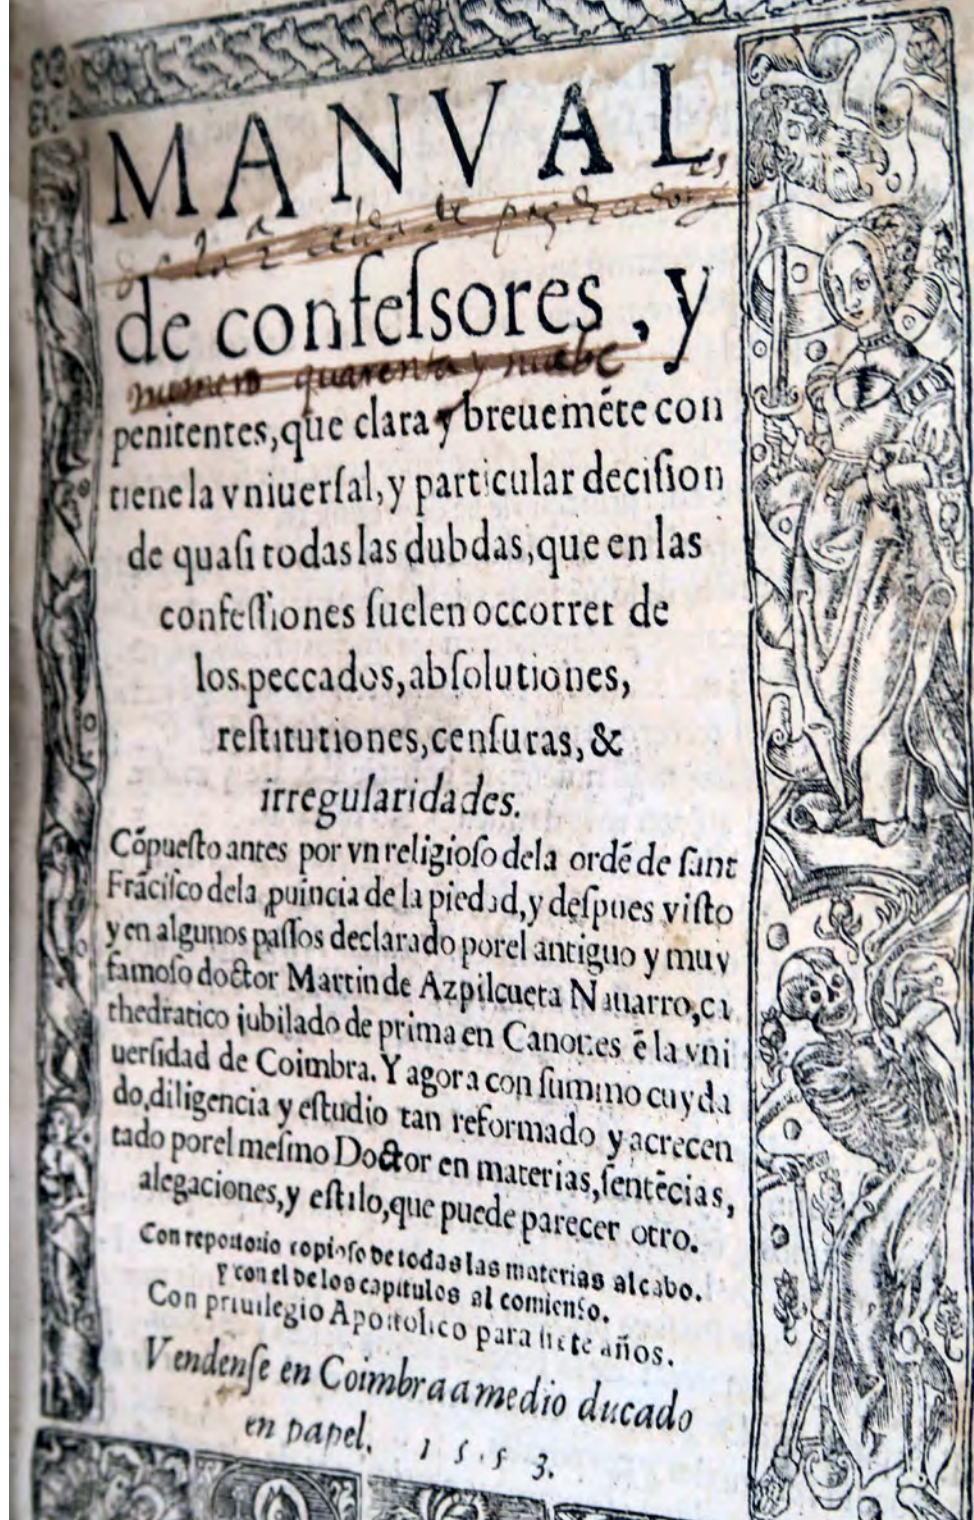 MANVAL
de confeſsores, y
numero quarenta y nuebe
penitentes, que clara y breuemẽte con
tiene la vniuerſal, y particular deciſion
de quaſi todas las dubdas, que en las
confeſſiones ſuelen occorrer de
los peccados, abſolutiones,
reſtitutiones, cenſuras, &
irregularidades.
Cõpueſto antes por vn religioſo dela ordẽ de ſant
Frãciſco dela puincia de la piedad, y deſpues viſto
y en algunos paſſos declarado porel antiguo y muy
famoſo doctor Martin de Azpilcueta Nauarro, ca
thedratico jubilado de prima en Canones ẽ la vni
uerſidad de Coimbra. Y agora con ſummo cuyda
do, diligencia y eſtudio tan reformado y acrecen
tado porel meſmo Doctor en materias, ſentẽcias,
alegaciones, y eſtilo, que puede parecer otro.
Con repertorio copioſo de todas las materias al cabo.
y con el de los capitulos al comienço.
Con priuilegio Apoſtolico para ſiete años.
Vendenſe en Coimbra a medio ducado
en papel. 1553.